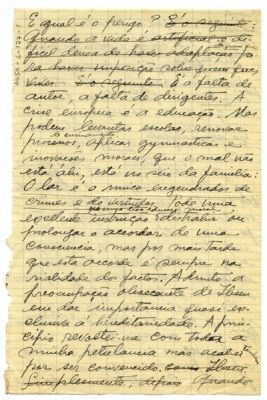 E qual é o perigo? É o seguinte:
Quando a vida é artificial e di
ficil deixa de haver adaptação pa
ra haver imposição sobre quem quer
viver. É o seguinte. É a falta de
autor, a falta de dirigentes. A
crise européa é a educação. Mas
podem levantar escolas, renovar
os ensinamentos
processos, aplicar gymnasticas e
innovacoes moraes, que o mal não
está ahi, está no seio da familia:
O lar é o unico engendrador de
crimes e de virtudes. Toda uma
excellente instrucção distrahir ou
prolongar o accordar de uma
consciencia, mas por mais tarde
que esta accorde é sempre na
rialidade do factor. Admito a
preoccupação obsecante de Ibsen
em dar importancia quase ex-
clusiva á hereditariedade. A prin-
cipio revoltei-me com toda a
minha petulancia mas acabei
por ser convencido. como Ibsen
simplesmente, depois quando